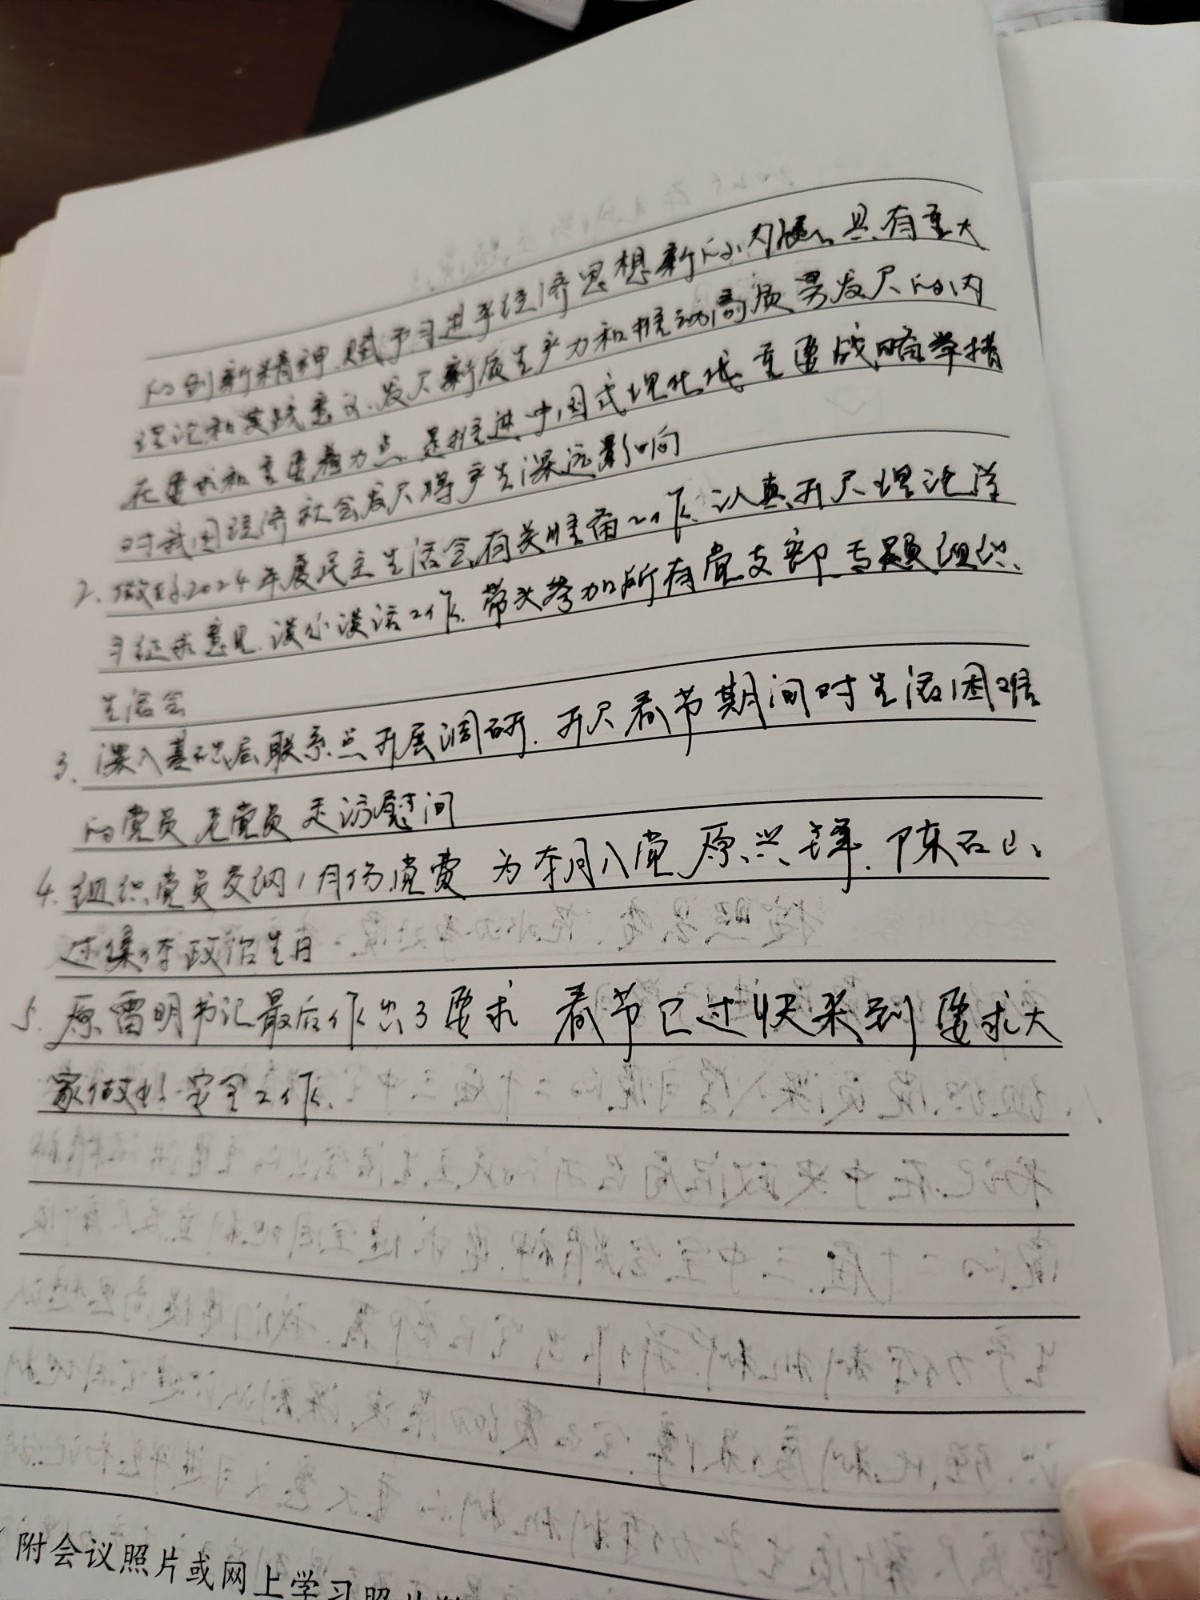 的创新精神,赋予习近平经济思想新的内涵,具有重大
理论和实践意义.发展新质生产力和推动高质量发展的内
在要求和重要着力点.是推进中国式现代化重要战略举措
对我国经济社会发展将产生深远影响
2. 做好2024年度民主生活会有关准备工作,认真开展理论学
习征求意见.谈心谈话工作.带头参加所有党支部专题组织
生活会
3. 深入基础层联系点开展调研.开展春节期间对生活困难
的党员 老党员 走访慰问
4. 组织党员交纳1月份党费 为本月入党 原兴 陈石山
过集体政治生日
5. 原雷明书记最后作出了要求 春节已过快来到 要求大
家做好安全工作.
附会议照片或网上学习照片